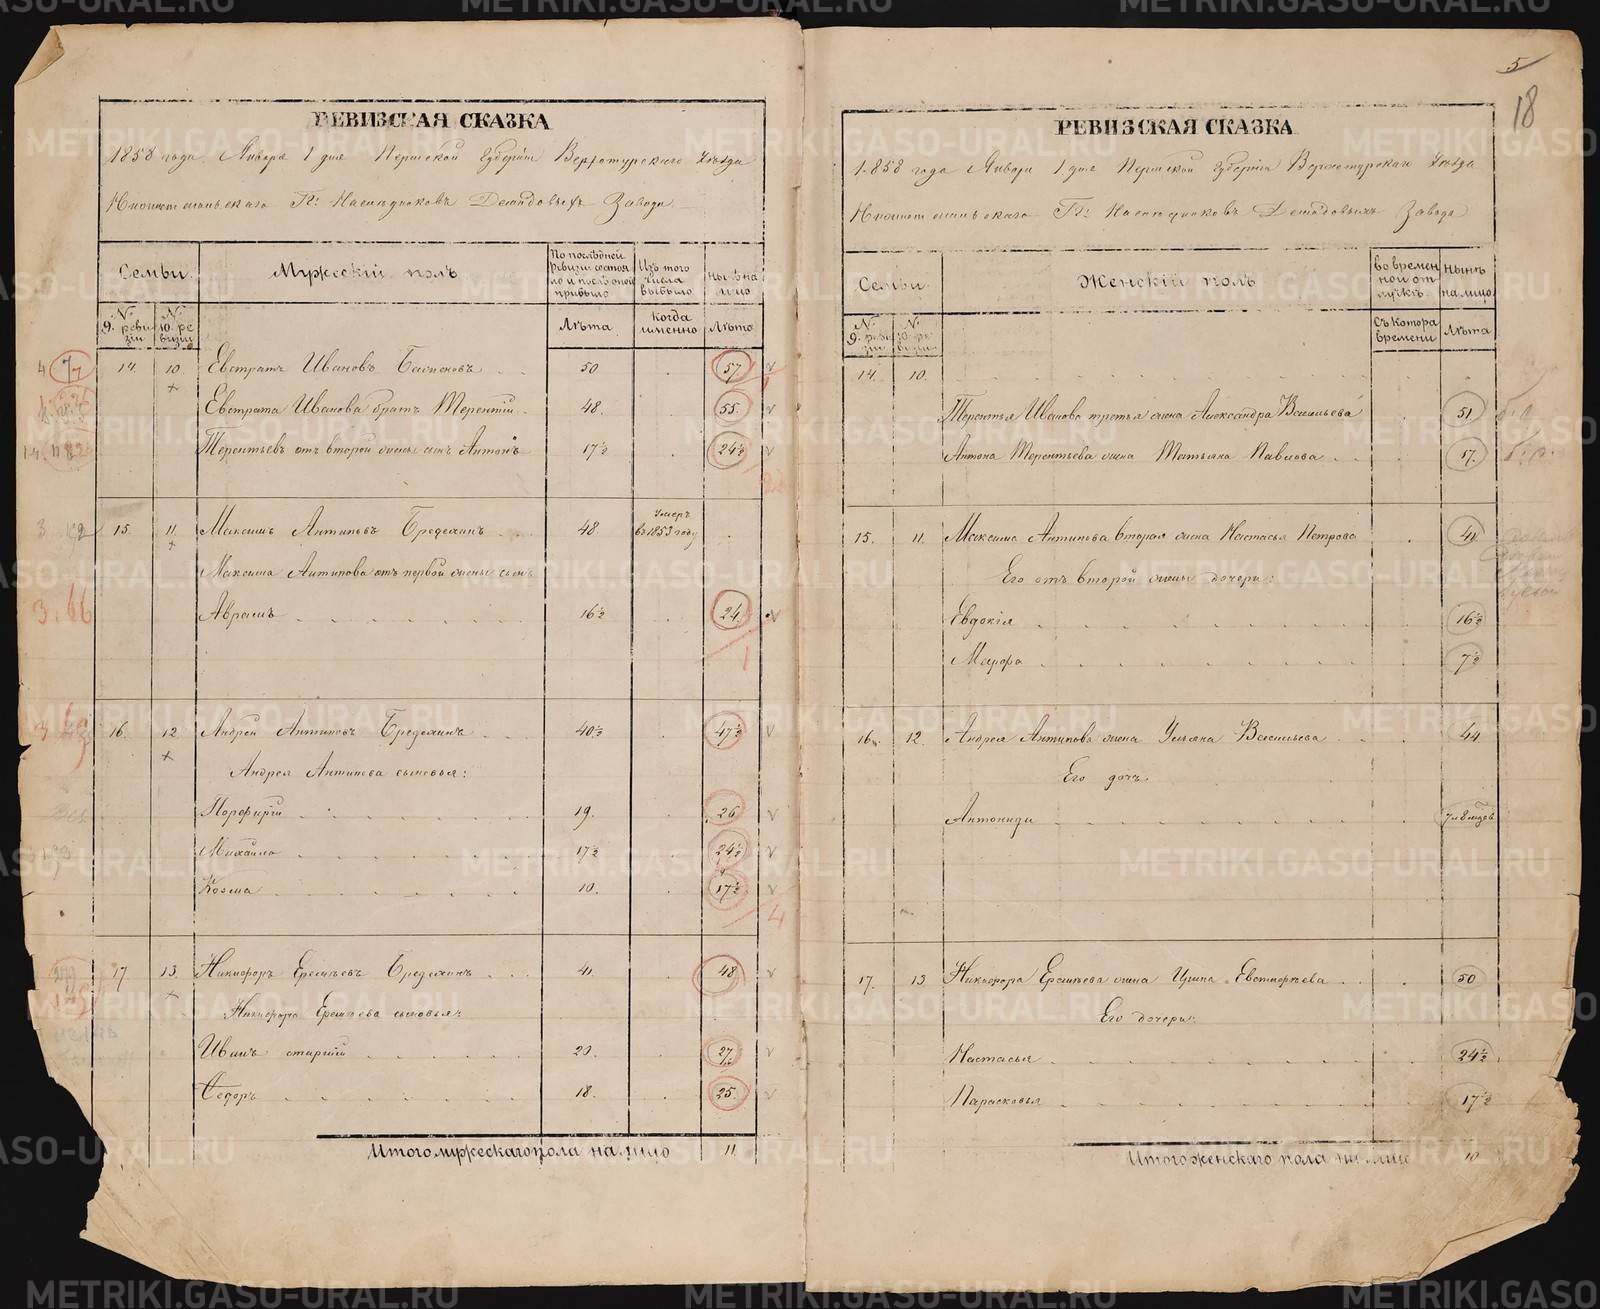 5
18
РЕВИЗСКАЯ СКАЗКА
1858 года Января 1 дня Пермской Губернiи Верхотурскаго Уѣзда
Нижнетагильскаго Гг: Наслѣдниковъ Демидовыхъ Завода
Семьи. Мужескiй полъ По послѣдней ревизiи состояло и послѣ оной прибыло Изъ того числа выбыло Нынѣ на лицо
№ 9. ревизiи № 10. ревизiи Лѣта Когда именно Лѣта
14. 10. Евстратъ Ивановъ 50 57
Евстрата Иванова братъ Терентiй 48. 55.
Терентьевъ отъ второй жены сынъ Антонъ 17½ 24½
15. 11. Максимъ Антиповъ Бредихинъ 48. Умеръ въ 1853 году
Максима Антипова отъ первой жены сынъ
Аврамъ 16½ 24.
16. 12 Андрей Антиповъ Бредихинъ 40½ 47½
Андрея Антипова сыновья:
Порфирiй 19. 26
Михайло 17½ 24½
Козма 10. 17½
17 13. Никифоръ Еремѣевъ Бредихинъ 41. 48
Никифора Еремѣева сыновья:
Иванъ старшiй 20. 27
Федоръ 18. 25.
Итого мужескаго пола на лицо 11
РЕВИЗСКАЯ СКАЗКА
1858 года Января 1 дня Пермской Губернiи Верхотурскаго Уѣзда
Нижнетагильскаго Гг: Наслѣдниковъ Демидовыхъ Завода
Семьи. Женскiй полъ Во временной отлучкѣ. Нынѣ на лицо
№ 9. ревизiи № 10. ревизiи Съ котора времени Лѣта
14. 10.
Терентья Иванова третья жена Александра Васильева 51
Антона Терентьева жена Татьяна Павлова 17.
15. 11. Максима Антипова вторая жена Настасья Петрова 41
Его отъ второй жены дочери:
Евдокiя 16½
Марфа 7½
16. 12. Андрея Антипова жена Ульяна Васильева 44
Его дочь.
Антонида
17. 13 Никифора Еремѣева жена Ирина 50
Его дочери:
Настасья 24½
Парасковья 17½
Итого женскаго пола на лицо 10
METRIKI.GASO-URAL.RU